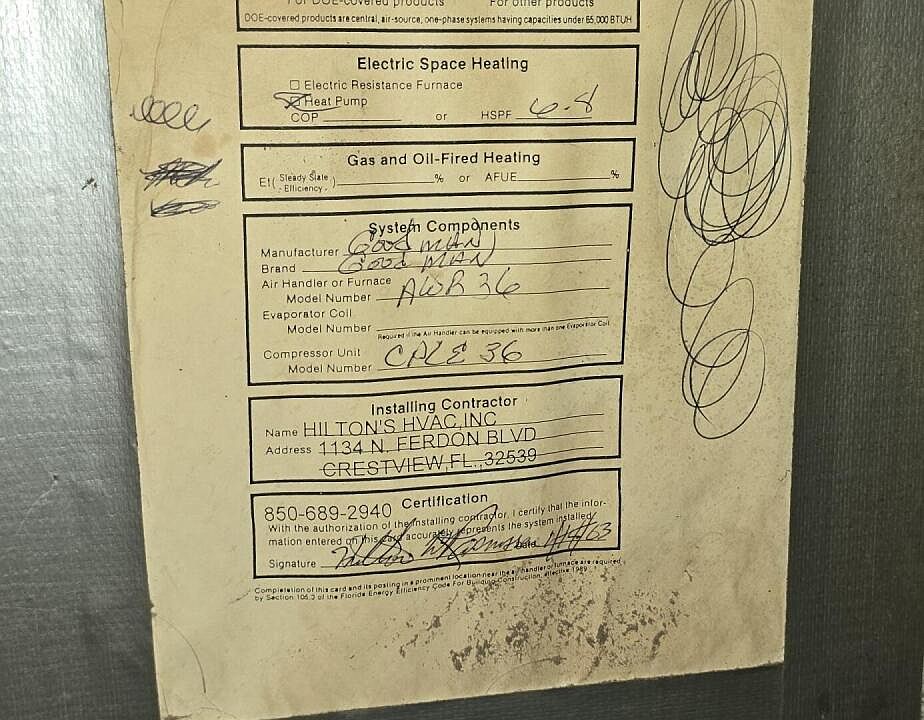 For DOE-covered products For other products
DOE-covered products are central, air-source, one-phase systems having capacities under 65,000 BTUH
Electric Space Heating
Electric Resistance Furnace
Heat Pump
COP or HSPF 6.8
Gas and Oil-Fired Heating
Et( Steady State Efficiency ) % or AFUE %
System Components
Manufacturer GOODMAN
Brand GOODMAN
Air Handler or Furnace
Model Number AWR 36
Evaporator Coil
Model Number
Required if the Air Handler can be equipped with more than one Evaporator Coil
Compressor Unit
Model Number CPLE 36
Installing Contractor
Name HILTON'S HVAC,INC
Address 1134 N. FERDON BLVD
CRESTVIEW,FL.,32539
850-689-2940 Certification
With the authorization of the installing contractor, I certify that the infor-
mation entered on this card accurately represents the system installed
Signature Date
Completion of this card and its posting in a prominent location near the air handler or furnace are required
by Section 105.3 of the Florida Energy Efficiency Code For Building Construction, effective 1989